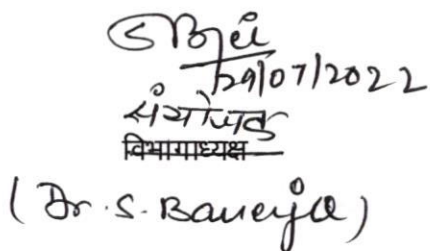 29/07/2022
संयोजक
विभागाध्यक्ष
(Dr. S. Banerjee)